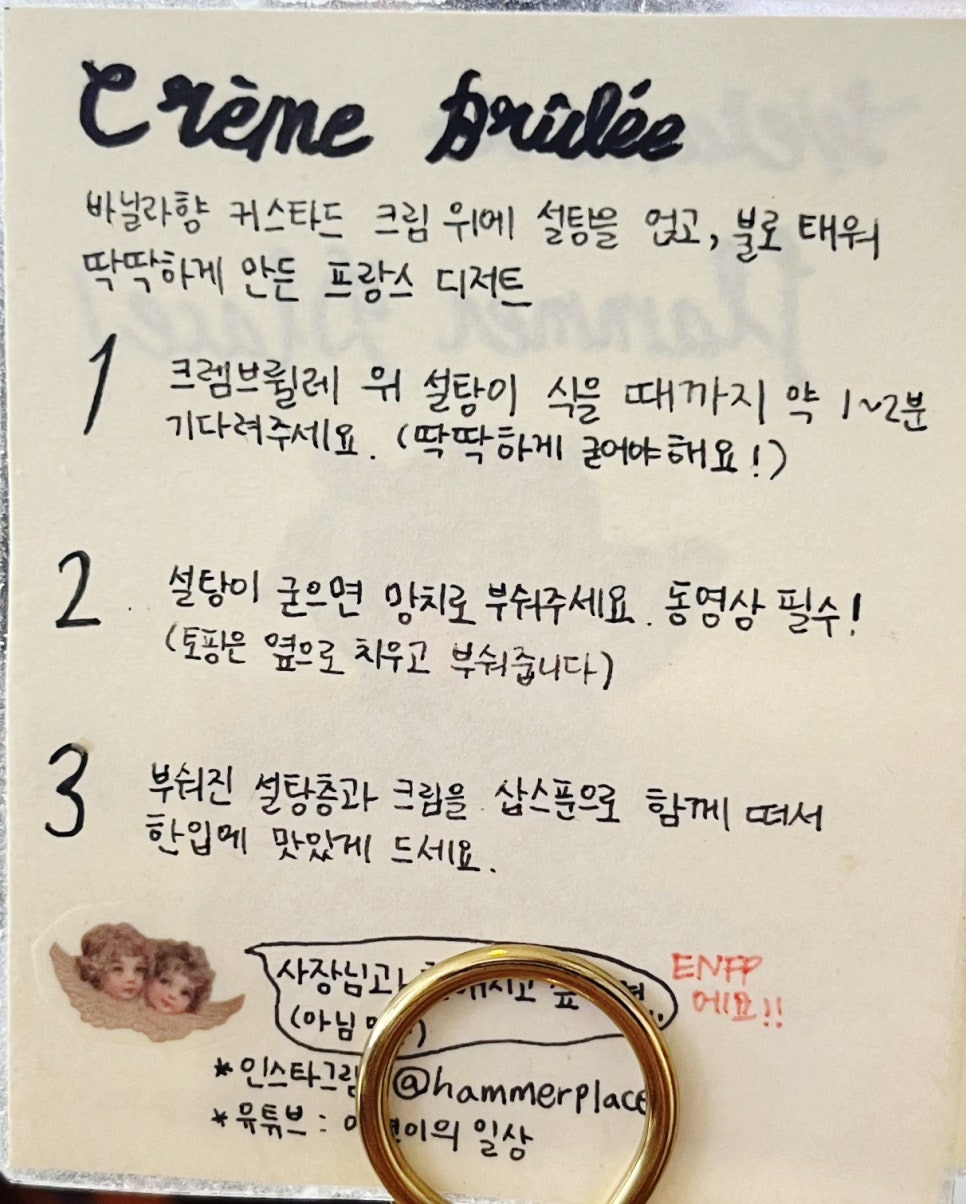 Crème Brûlée
바닐라향 커스타드 크림 위에 설탕을 얹고, 불로 태워
딱딱하게 만든 프랑스 디저트
1 크렘브륄레 위 설탕이 식을 때까지 약 1~2분
기다려주세요. (딱딱하게 굳어야해요!)
2 설탕이 굳으면 망치로 부숴주세요. 동영상 필수!
(토핑은 옆으로 치우고 부숴줍니다)
3 부숴진 설탕층과 크림을 삽스푼으로 함께 떠서
한입에 맛있게 드세요.
사장님과
(아님
ENFP
에요!!
*인스타그램 @hammerplace
*유튜브 : 일상